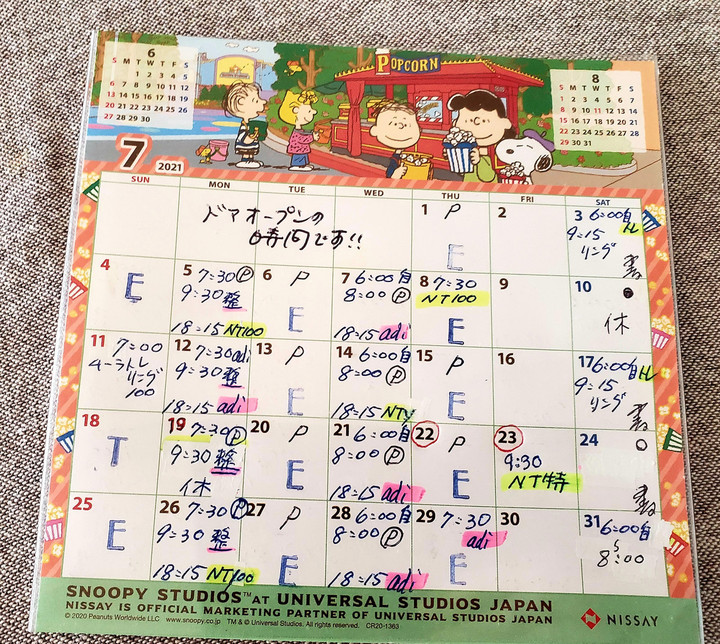 6
S M T W T F S
1 2 3 4 5
6 7 8 9 10 11 12
13 14 15 16 17 18 19
20 21 22 23 24 25 26
27 28 29 30
POPCORN
8
S M T W T F S
1 2 3 4 5 6 7
8 9 10 11 12 13 14
15 16 17 18 19 20 21
22 23 24 25 26 27 28
29 30 31
7 2021
SUN MON TUE WED THU FRI SAT
ドアオープンの
時間です!!
1 P
E
2
3 6:00自
トレ
9:15
リング
4
E
5 7:30Ⓟ
9:30整
18=15 NT100
6 P
E
7 6:00自
8:00 Ⓟ
18=15 adi
8 7:30
NT100
E
9
10
休
11 7:00
4-ラトレ
リング
100
12 7:30adi
9:30整
18=15 adi
13 P
E
14 6:00自
8:00 Ⓟ
18=15 NTy
15 P
E
16
17 6:00自
トレ
9:15
リング
18
T
19 7:30Ⓟ
9:30 整
休
20 P
E
21 6:00自
8:00 Ⓟ
18=15 adi
22 P
E
23
9:30
NT特
24
25
E
26 7:30Ⓟ
9:30 整
18=15 NT100
27 P
E
28 6:00自
8:00 Ⓟ
18=15 adi
29 7:30
adi
E
30
31 6:00自
8:00
SNOOPY STUDIOS™ AT UNIVERSAL STUDIOS JAPAN
NISSAY IS OFFICIAL MARKETING PARTNER OF UNIVERSAL STUDIOS JAPAN
© 2020 Peanuts Worldwide LLC www.snoopy.co.jp TM & © Universal Studios. All rights reserved. CR20-1363
NISSAY